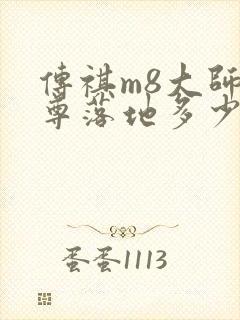 傳祺m8大師
尊落地多少
蛋蛋1113